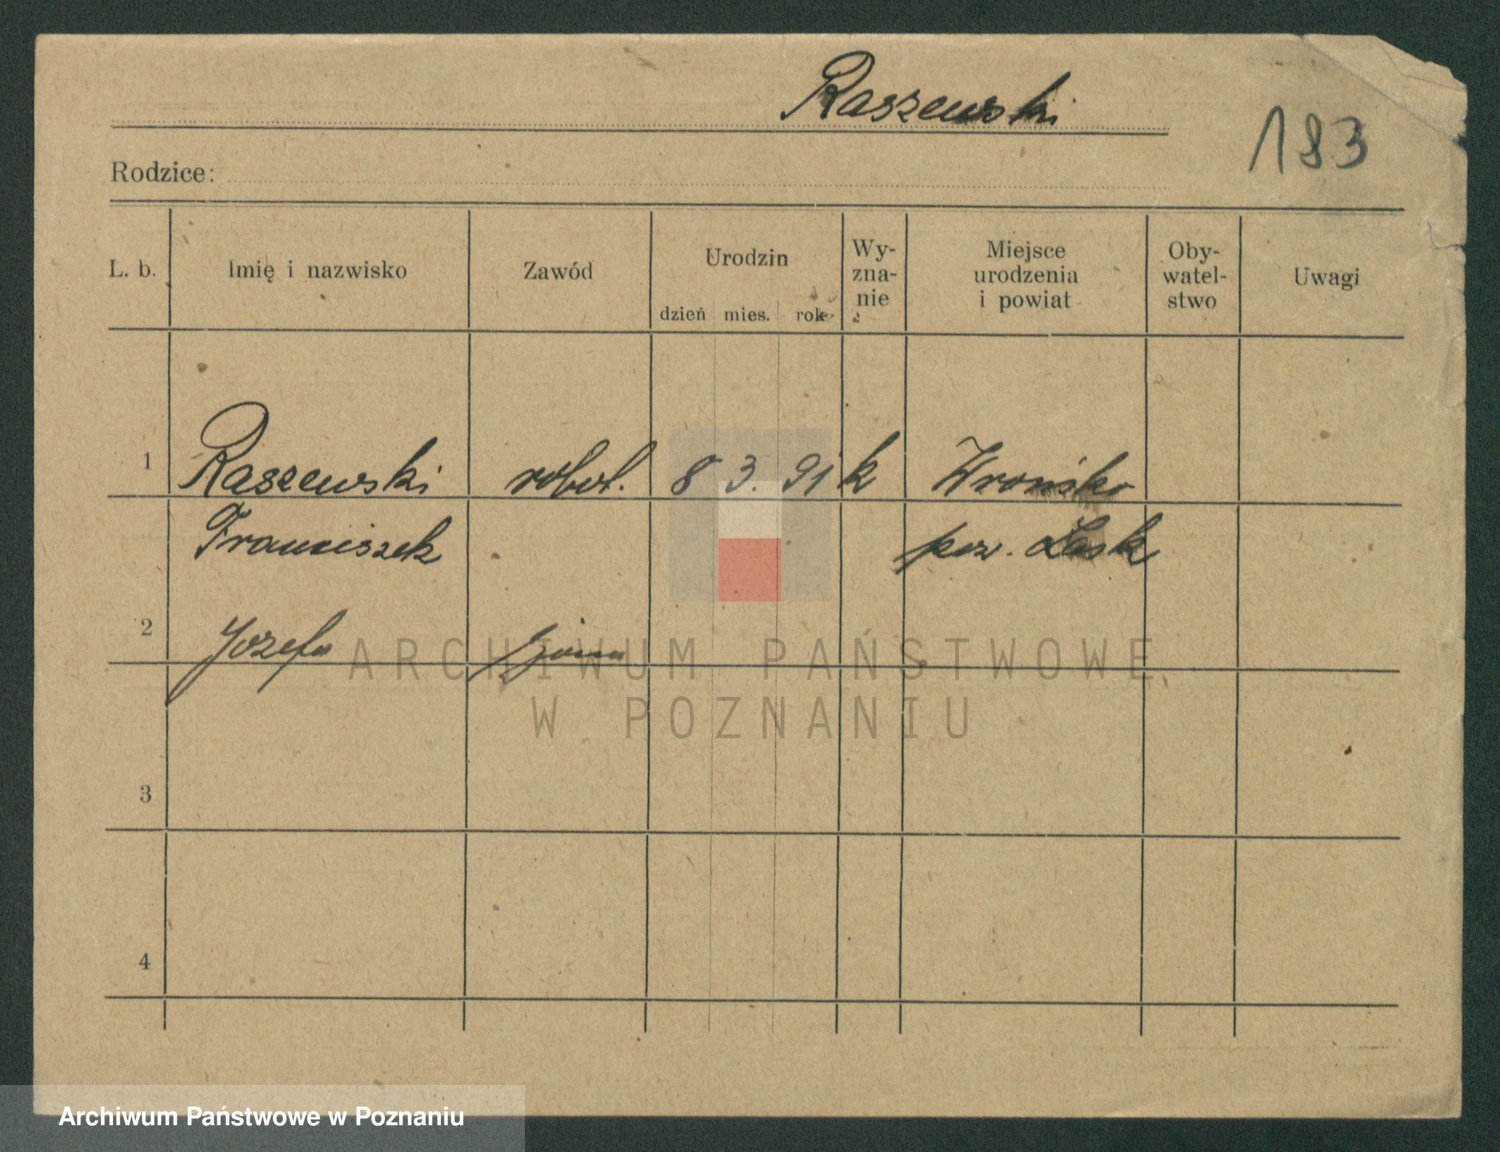 Raszewski
183
Rodzice:
L. b. Imię i nazwisko Zawód Urodzin dzień mies. rok Wy-zna-nie Miejsce urodzenia i powiat Oby-watel-stwo Uwagi
1 Raszewski robot. 8 3. 91 k Wrońsko
Franciszek pow. Łask
2 Jozefa żona
3
4
ARCHIWUM PAŃSTWOWE
W POZNANIU
Archiwum Państwowe w Poznaniu